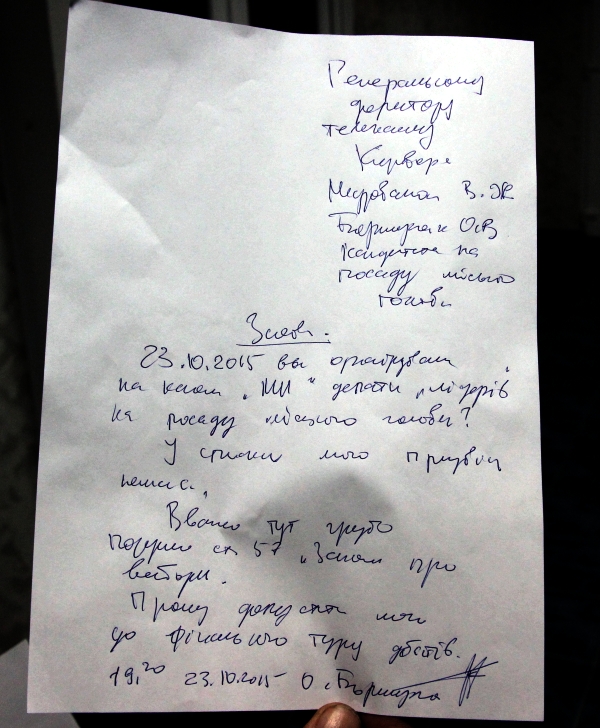 Генеральному
директору
телеканалу
В. Ж
О.В
Кандидата на
посаду міського
голови
Заява.
23.10.2015 ви організували
на каналі „МИ“ дебати „лідерів“
на посаду міського голови?
У списку мого прізвища
немає.
Вважаю тут грубо
порушено ст 57 „Закону про
вибори.
Прошу допустити мене
до фінального туру дебатів.
19,20 23.10.2015 О.